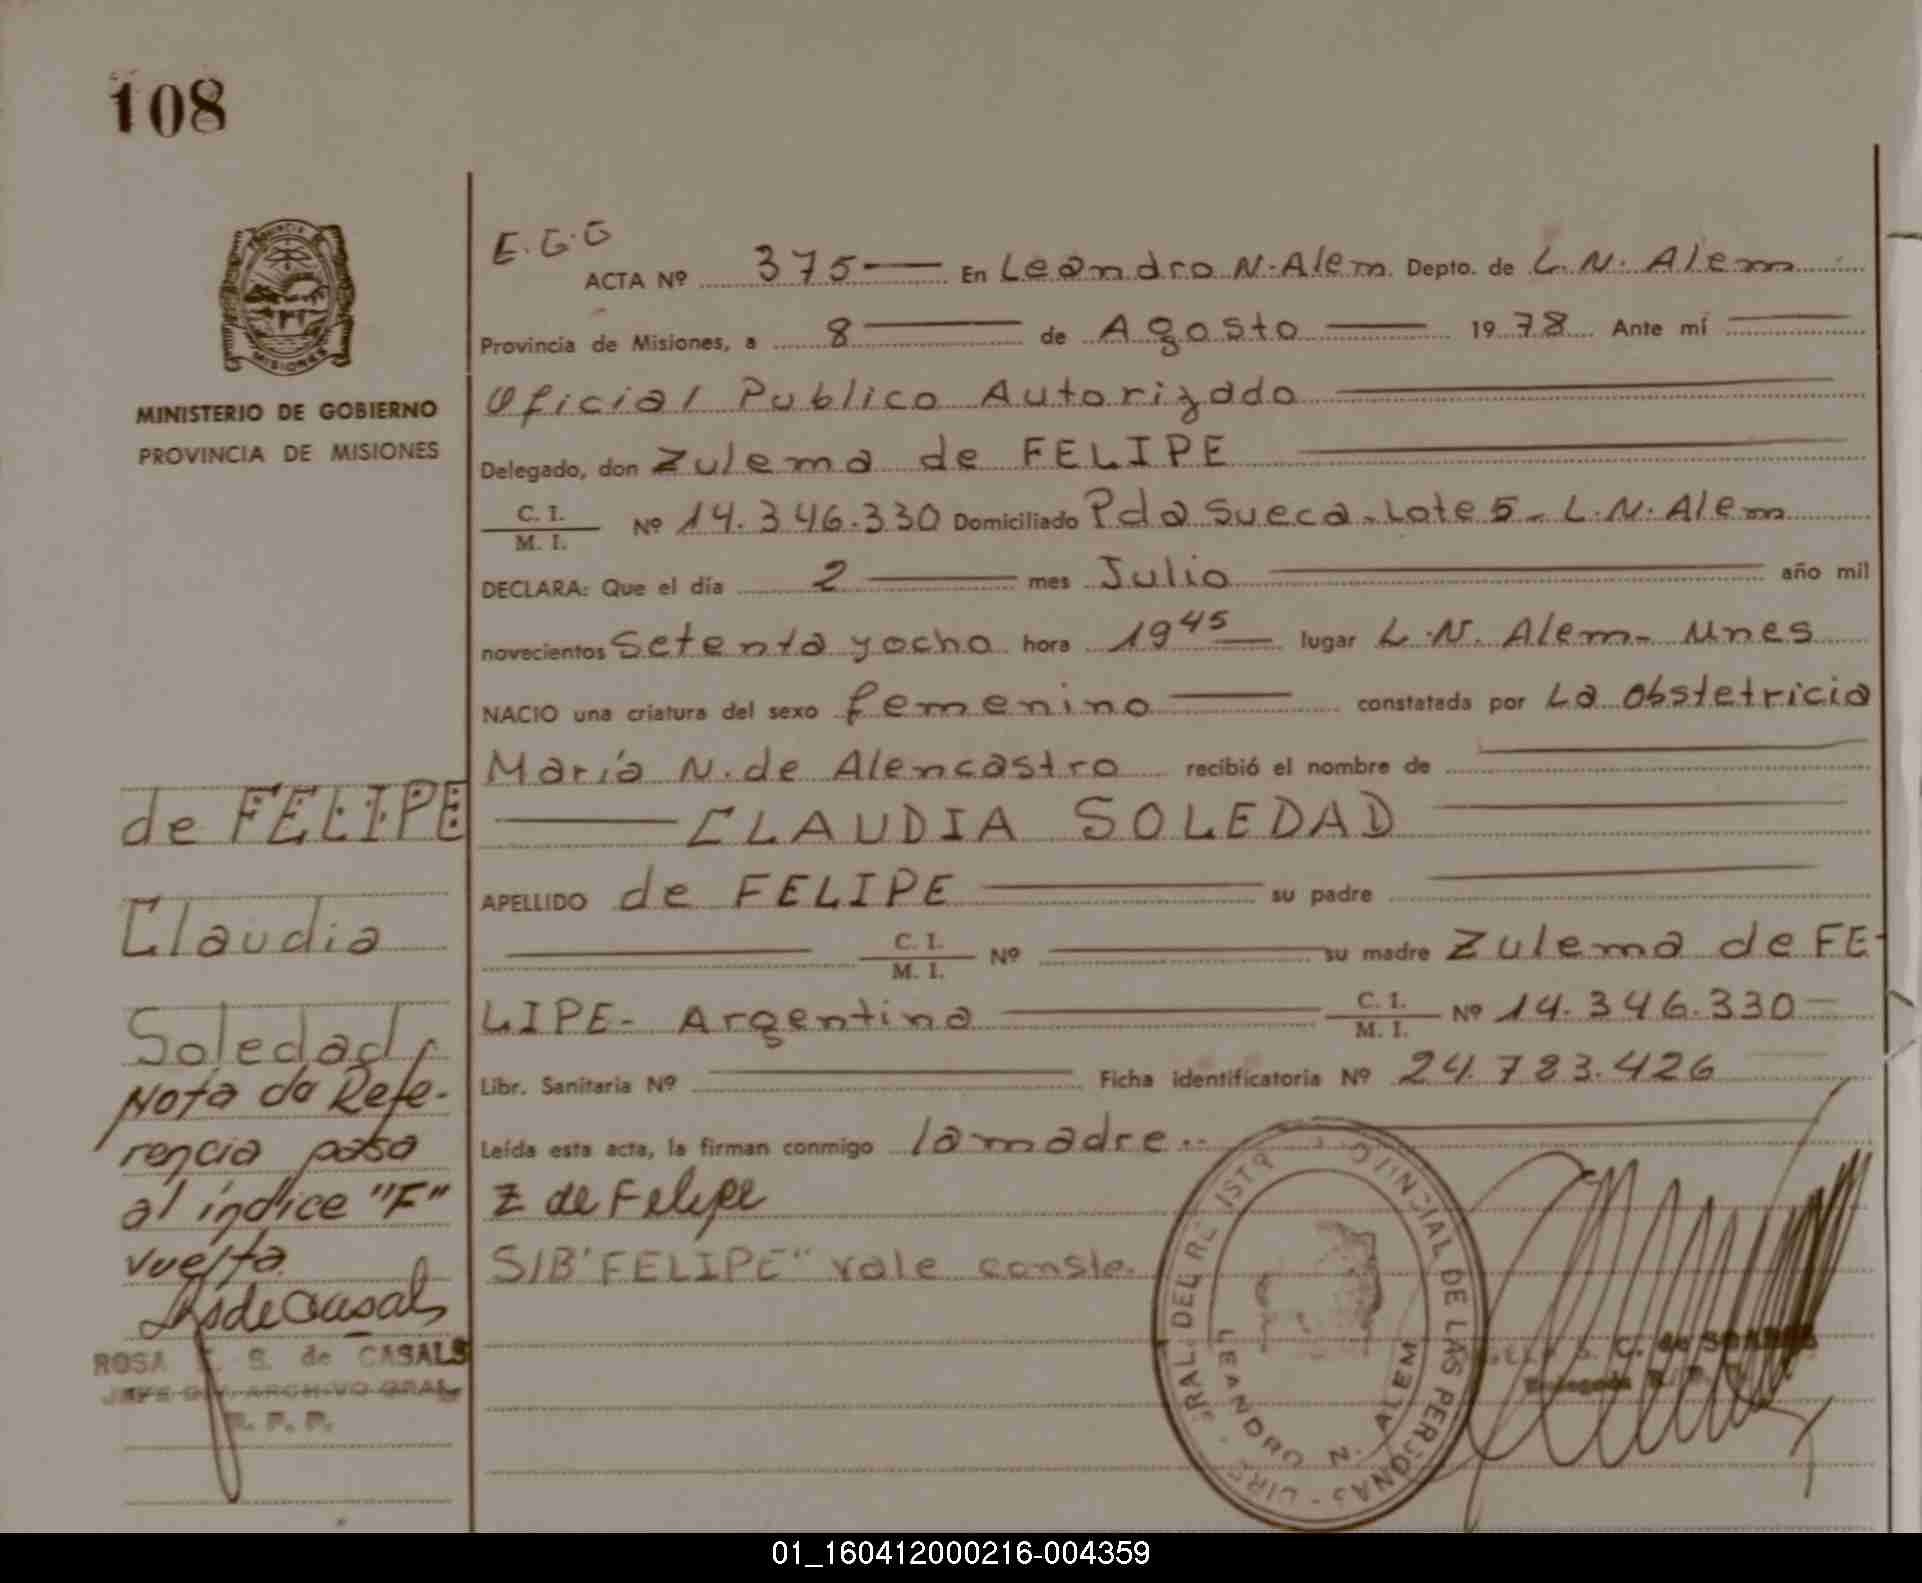 108
E.G.G
ACTA Nº 375 En Leandro N. Alem. Depto. de L. N. Alem
Provincia de Misiones, a 8 de Agosto 1978 Ante mí
Oficial Publico Autorizado
Delegado, don Zulema de FELIPE
C. I.
M. I. Nº 14.346.330 Domiciliado Pda Sueca - Lote 5 - L.N. Alem
DECLARA: Que el día 2 mes Julio año mil
novecientos Setenta y ocho hora 19 45 lugar L.N. Alem - Mnes
NACIO una criatura del sexo femenino constatada por La Obstetricia
María N. de Alencastro recibió el nombre de
CLAUDIA SOLEDAD
APELLIDO de FELIPE su padre
C. I.
M. I. Nº su madre Zulema de FE-
LIPE - Argentina C. I.
M. I. Nº 14.346.330
Libr. Sanitaria Nº Ficha identificatoria Nº 24.783.426
Leída esta acta, la firman conmigo la madre..
Z de Felipe
S/B "FELIPE" vale conste.
PROVINCIA
MISIONES
MINISTERIO DE GOBIERNO
PROVINCIA DE MISIONES
de FELIPE
Claudia
Soledad
Nota da Refe-
rencia pasa
al índice "F"
vuelta
ROSA S. de CASALS
JEFE DIV. ARCHIVO GRAL
R. P. P.
GRAL DEL REGISTRO PROVINCIAL DE LAS PERSONAS
LEANDRO N. ALEM
C. de SOARES
01_160412000216-004359